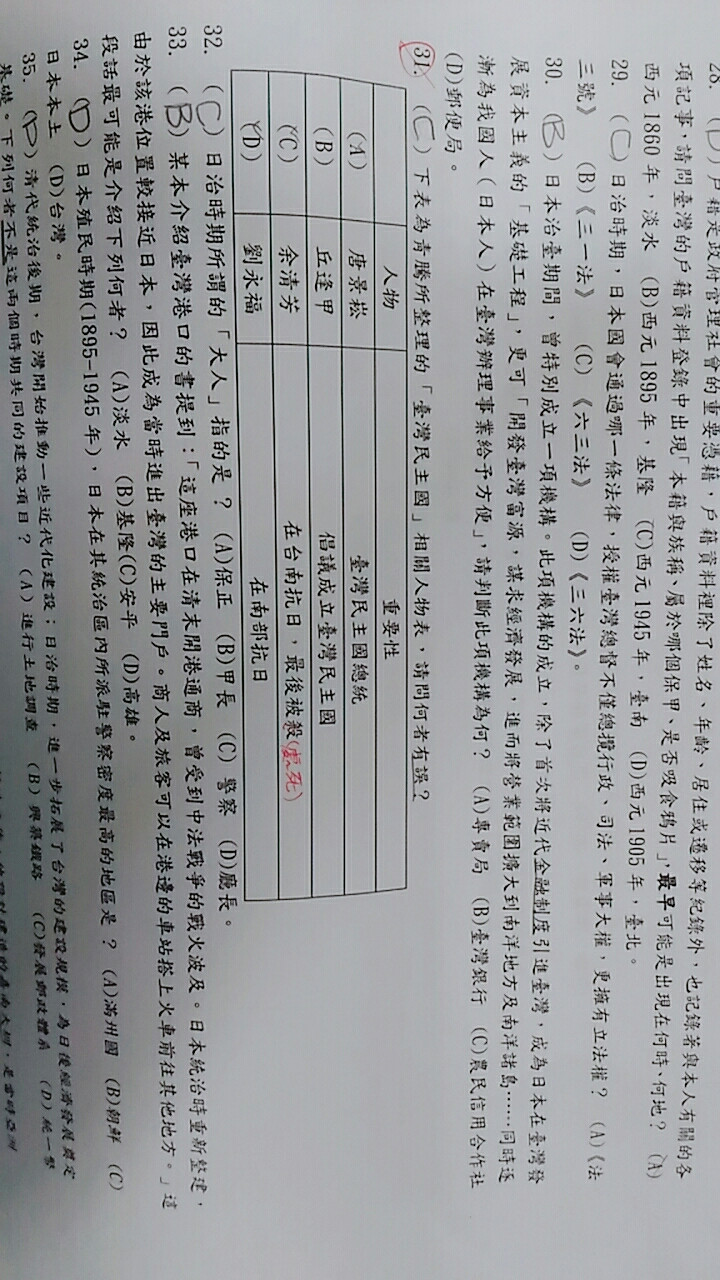 28. (D) 戶籍是政府管理社會的重要憑藉,戶籍資料裡除了姓名、年齡、居住或遷移等紀錄外,也記錄著與本人有關的各
項記事,請問臺灣的戶籍資料登錄中出現「本籍與族稱、屬於哪個保甲、是否吸食鴉片」,最早可能是出現在何時、何地? (A)
西元1860年,淡水 (B)西元1895年,基隆 (C)西元1945年,臺南 (D)西元1905年,臺北。
29. (C) 日治時期,日本國會通過哪一條法律,授權臺灣總督不僅總攬行政、司法、軍事大權,更擁有立法權? (A)《法
三號》 (B)《三一法》 (C)《六三法》 (D)《三六法》。
30. (B) 日本治臺期間,曾特別成立一項機構。此項機構的成立,除了首次將近代金融制度引進臺灣,成為日本在臺灣發
展資本主義的「基礎工程」,更可「開發臺灣富源,謀求經濟發展,進而將營業範圍擴大到南洋地方及南洋諸島……同時逐
漸為我國人(日本人)在臺灣辦理事業給予方便」,請判斷此項機構為何? (A)專賣局 (B)臺灣銀行 (C)農民信用合作社
(D)郵便局。
31. (C) 下表為青騰所整理的「臺灣民主國」相關人物表,請問何者有誤?
人物 重要性
(A) 唐景崧 臺灣民主國總統
(B) 丘逢甲 倡議成立臺灣民主國
(C) 余清芳 在台南抗日,最後被殺(處死)
(D) 劉永福 在南部抗日
32. (C) 日治時期所謂的「大人」指的是? (A)保正 (B)甲長 (C)警察 (D)廳長。
33. (B) 某本介紹臺灣港口的書提到:「這座港口在清末開港通商,曾受到中法戰爭的戰火波及。日本統治時重新整建,
由於該港位置較接近日本,因此成為當時進出臺灣的主要門戶。商人及旅客可以在港邊的車站搭上火車前往其他地方。」這
段話最可能是介紹下列何者? (A)淡水 (B)基隆(C)安平 (D)高雄。
34. (D) 日本殖民時期(1895-1945年),日本在其統治區內所派駐警察密度最高的地區是? (A)滿州國 (B)朝鮮 (C)
日本本土 (D)台灣。
35. (D) 清代統治後期,台灣開始推動一些近代化建設;日治時期,進一步拓展了台灣的建設規模,為日後經濟發展奠定
基礎。下列何者不是這兩個時期共同的建設項目? (A)進行土地調查 (B)興築鐵路 (C)發展郵政體系 (D)統一幣